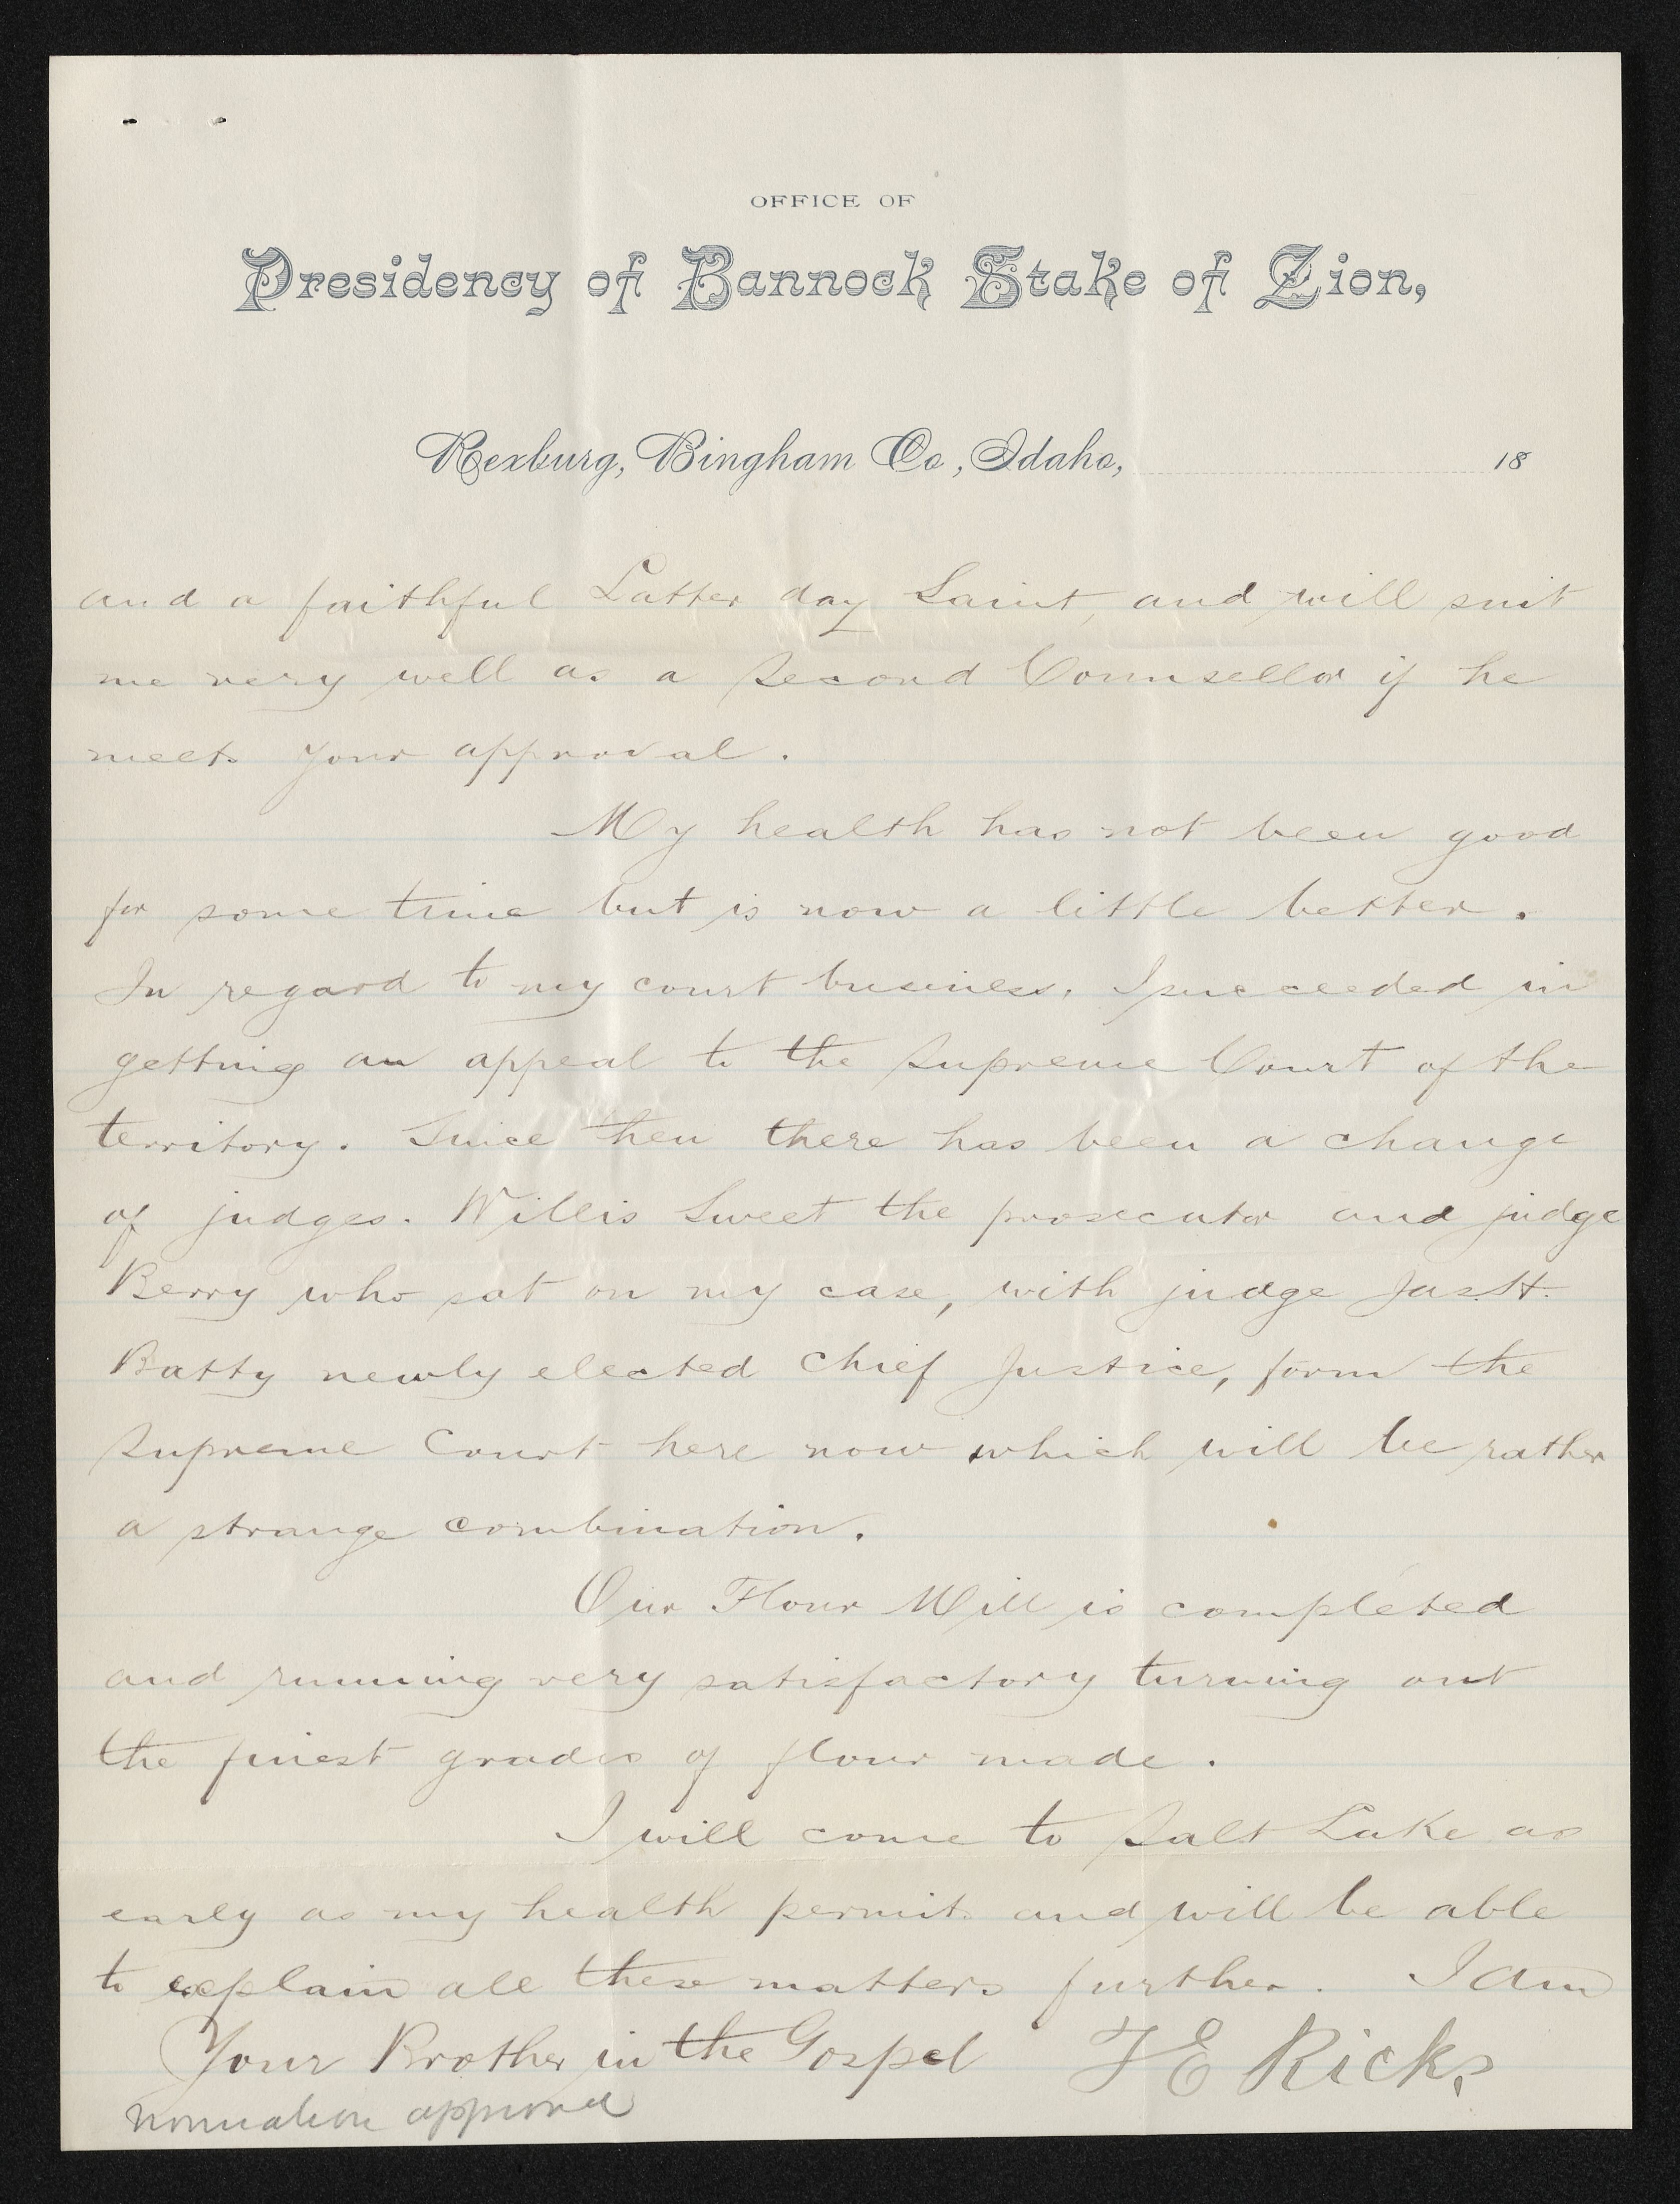 OFFICE OF
Presidency of Bannock Stake of Zion,
Rexburg, Bingham Co., Idaho, 18
and a faithful Latter day Saint, and will suit
me very well as a Second Counsellor if he
meets your approval.
My health has not been good
for some time but is now a little better.
In regard to my court business, I succeeded in
getting an appeal to the Supreme Court of the
territory. Since then there has been a change
of judges. Willis Sweet the prosecutor and judge
Berry who sat on my case, with judge Jas. H.
Batty newly elected Chief Justice, form the
Supreme Court here now which will be rather
a strange combination.
Our Flour Mill is completed
and running very satisfactory turning out
the finest grades of flour made.
I will come to Salt Lake as
early as my health permits and will be able
to explain all these matters further. I am
Your Brother in the Gospel T E Ricks
nomination approved